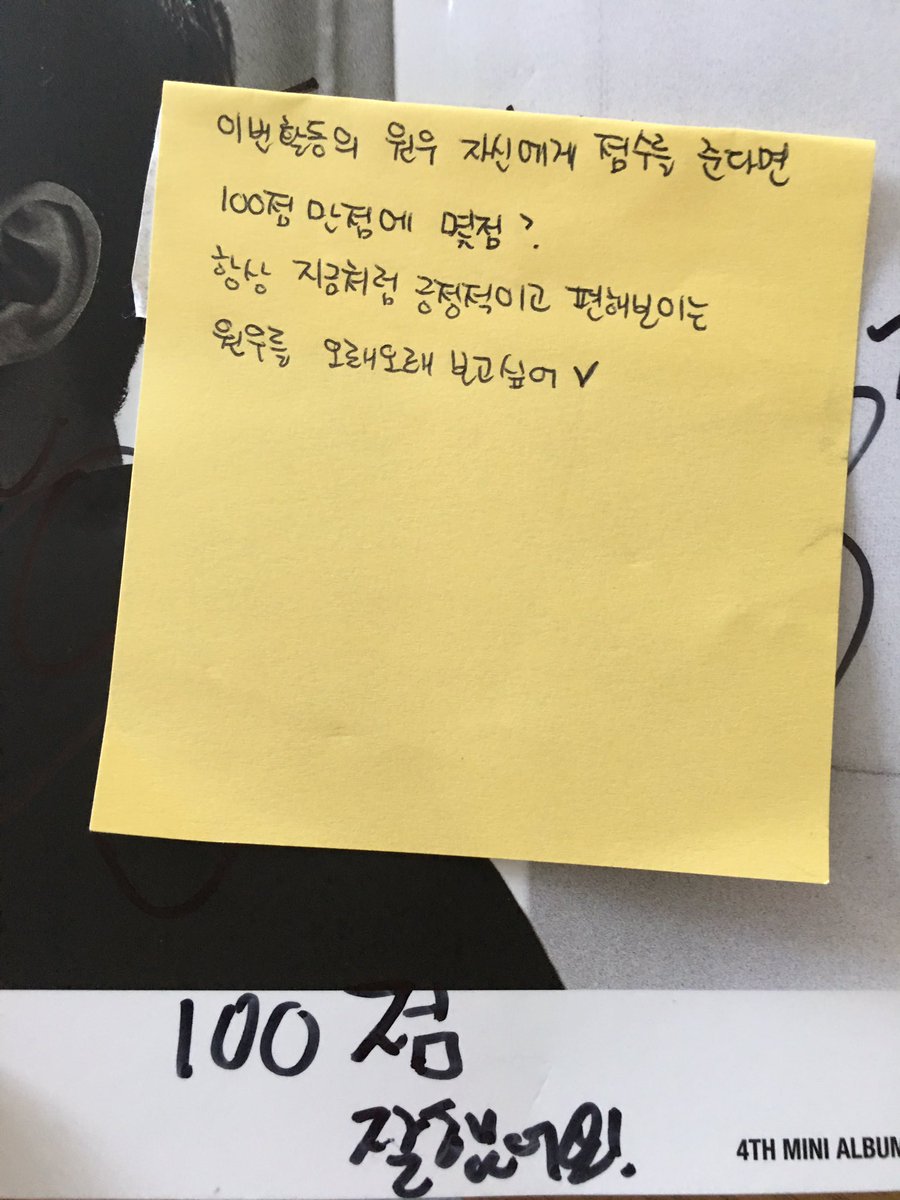 이번활동의 원우 자신에게 점수를 준다면
100점 만점에 몇점?
항상 지금처럼 긍정적이고 편해보이는
원우를 오래오래 보고싶어 ✓
100점
잘했어요.
4TH MINI ALBUM